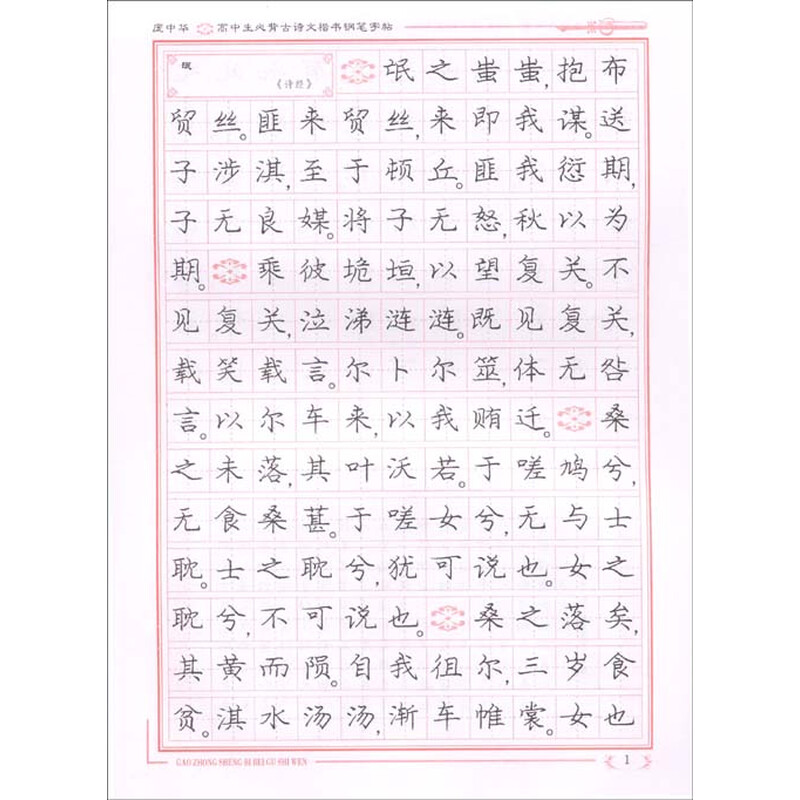 庞中华 高中生必背古诗文楷书钢笔字帖
氓
《诗经》
氓之蚩蚩,抱布
贸丝。匪来贸丝,来即我谋。送
子涉淇,至于顿丘。匪我愆期,
子无良媒。将子无怒,秋以为
期。乘彼垝垣,以望复关。不
见复关,泣涕涟涟。既见复关,
载笑载言。尔卜尔筮,体无咎
言。以尔车来,以我贿迁。桑
之未落,其叶沃若。于嗟鸠兮,
无食桑葚。于嗟女兮,无与士
耽。士之耽兮,犹可说也。女之
耽兮,不可说也。桑之落矣,
其黄而陨。自我徂尔,三岁食
贫。淇水汤汤,渐车帷裳。女也
GAO ZHONG SHENG BI BEI GU SHI WEN
1